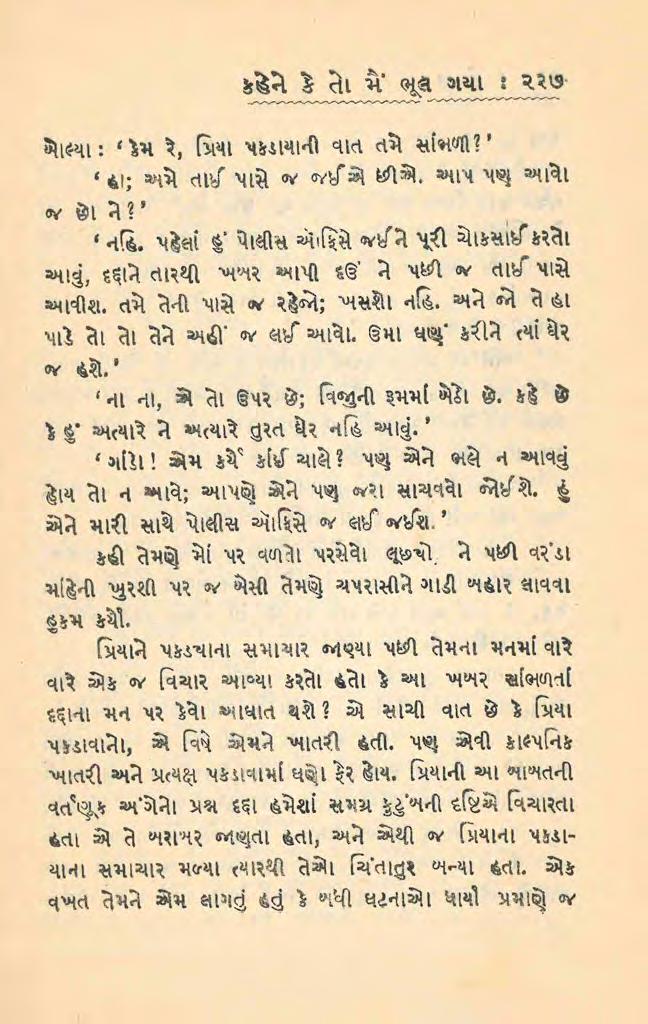 કહેને કે તો મેં ભૂલ ગયા : ૨૨૭
બોલ્યા : ‘ કેમ રે, પ્રિયા પકડાયાની વાત તમે સાંભળી ? ’
‘ હા; અમે તાઈ પાસે જ જઈએ છીએ. આપ પણ આવો
જ છો ને ? ’
‘ નહિ. પહેલાં હું પોલીસ ઑફિસે જઈને પૂરી ચોકસાઈ કરતો
આવું, દદ્દાને તારથી ખબર આપી દઉં ને પછી જ તાઈ પાસે
આવીશ. તમે તેની પાસે જ રહેજો; ખસશો નહિ. અને જો તે હા
પાડે તો તો તેને અહીં જ લઈ આવો. ઉમા ઘણું કરીને ત્યાં ઘેર
જ હશે. ’
‘ ના ના, એ તો ઉપર છે; વિજુની રૂમમાં બેઠો છે. કહે છે
કે હું અત્યારે ને અત્યારે તુરત ઘેર નહિ આવું. ’
‘ ગાંડો ! એમ કર્યે કાંઈ ચાલે ? પણ એને ભલે ન આવવું
હોય તો ન આવે; આપણે એને પણ જરા સાચવવો જોઈશે. હું
એને મારી સાથે પોલીસ ઑફિસે જ લઈ જઈશ. ’
કહી તેમણે મોં પર વળતો પરસેવો લૂછ્યો. ને પછી વરંડા
માંહેની ખુરશી પર જ બેસી તેમણે ચપરાસીને ગાડી બહાર લાવવા
હુકમ કર્યો.
પ્રિયાને પકડ્યાના સમાચાર જાણ્યા પછી તેમના મનમાં વારે
વારે એક જ વિચાર આવ્યા કરતો હતો કે આ ખબર સાંભળતાં
દદ્દાના મન પર કેવો આઘાત થશે ? એ સાચી વાત છે કે પ્રિયા
પકડાવાનો, એ વિષે એમને ખાતરી હતી. પણ એવી કાલ્પનિક
ખાતરી અને પ્રત્યક્ષ પકડાવામાં ઘણો ફેર હોય. પ્રિયાની આ બાબતની
વર્તણૂક અંગેનો પ્રશ્ન દદ્દા હમેશાં સમગ્ર કુટુંબની દૃષ્ટિએ વિચારતા
હતા એ તે બરાબર જાણતા હતા, અને એથી જ પ્રિયાના પકડા-
યાના સમાચાર મળ્યા ત્યારથી તેઓ ચિંતાતુર બન્યા હતા. એક
વખત તેમને એમ લાગતું હતું કે બધી ઘટનાઓ ધાર્યા પ્રમાણે જ